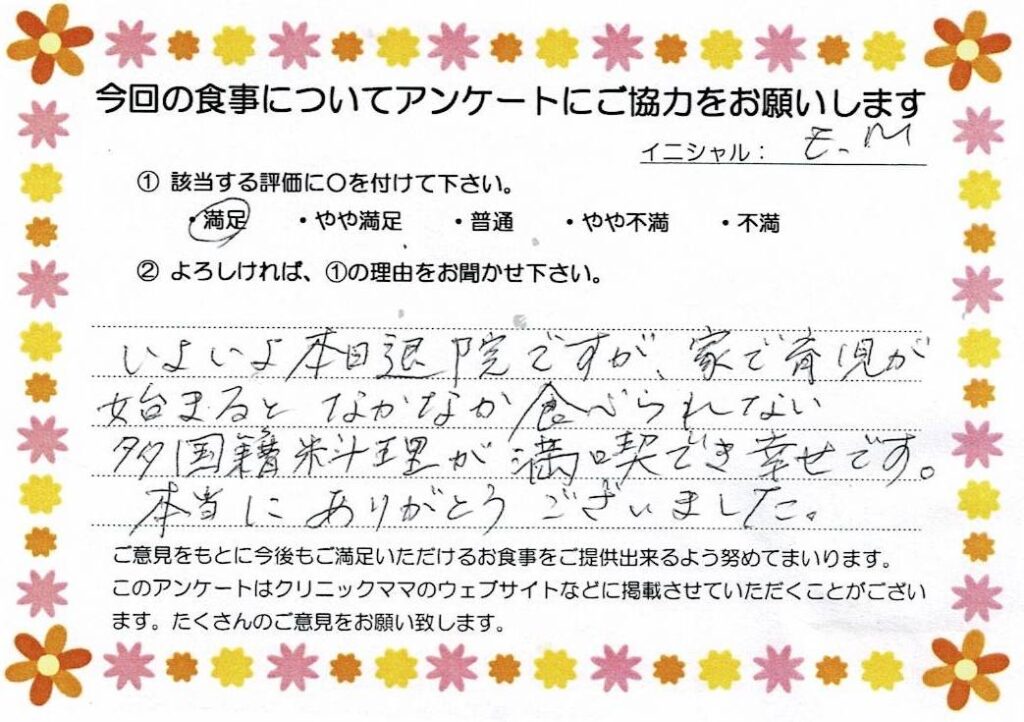 今回の食事についてアンケートにご協力をお願いします
イニシャル： E.M
① 該当する評価に〇を付けて下さい。
・満足 ・やや満足 ・普通 ・やや不満 ・不満
② よろしければ、①の理由をお聞かせ下さい。
いよいよ本日退院ですが、家で育児が
始まると なかなか食べられない
多国籍料理が満喫でき幸せです。
本当に ありがとう ございました。
ご意見をもとに今後もご満足いただけるお食事をご提供出来るよう努めてまいります。
このアンケートはクリニックママのウェブサイトなどに掲載させていただくことがござい
ます。たくさんのご意見をお願い致します。